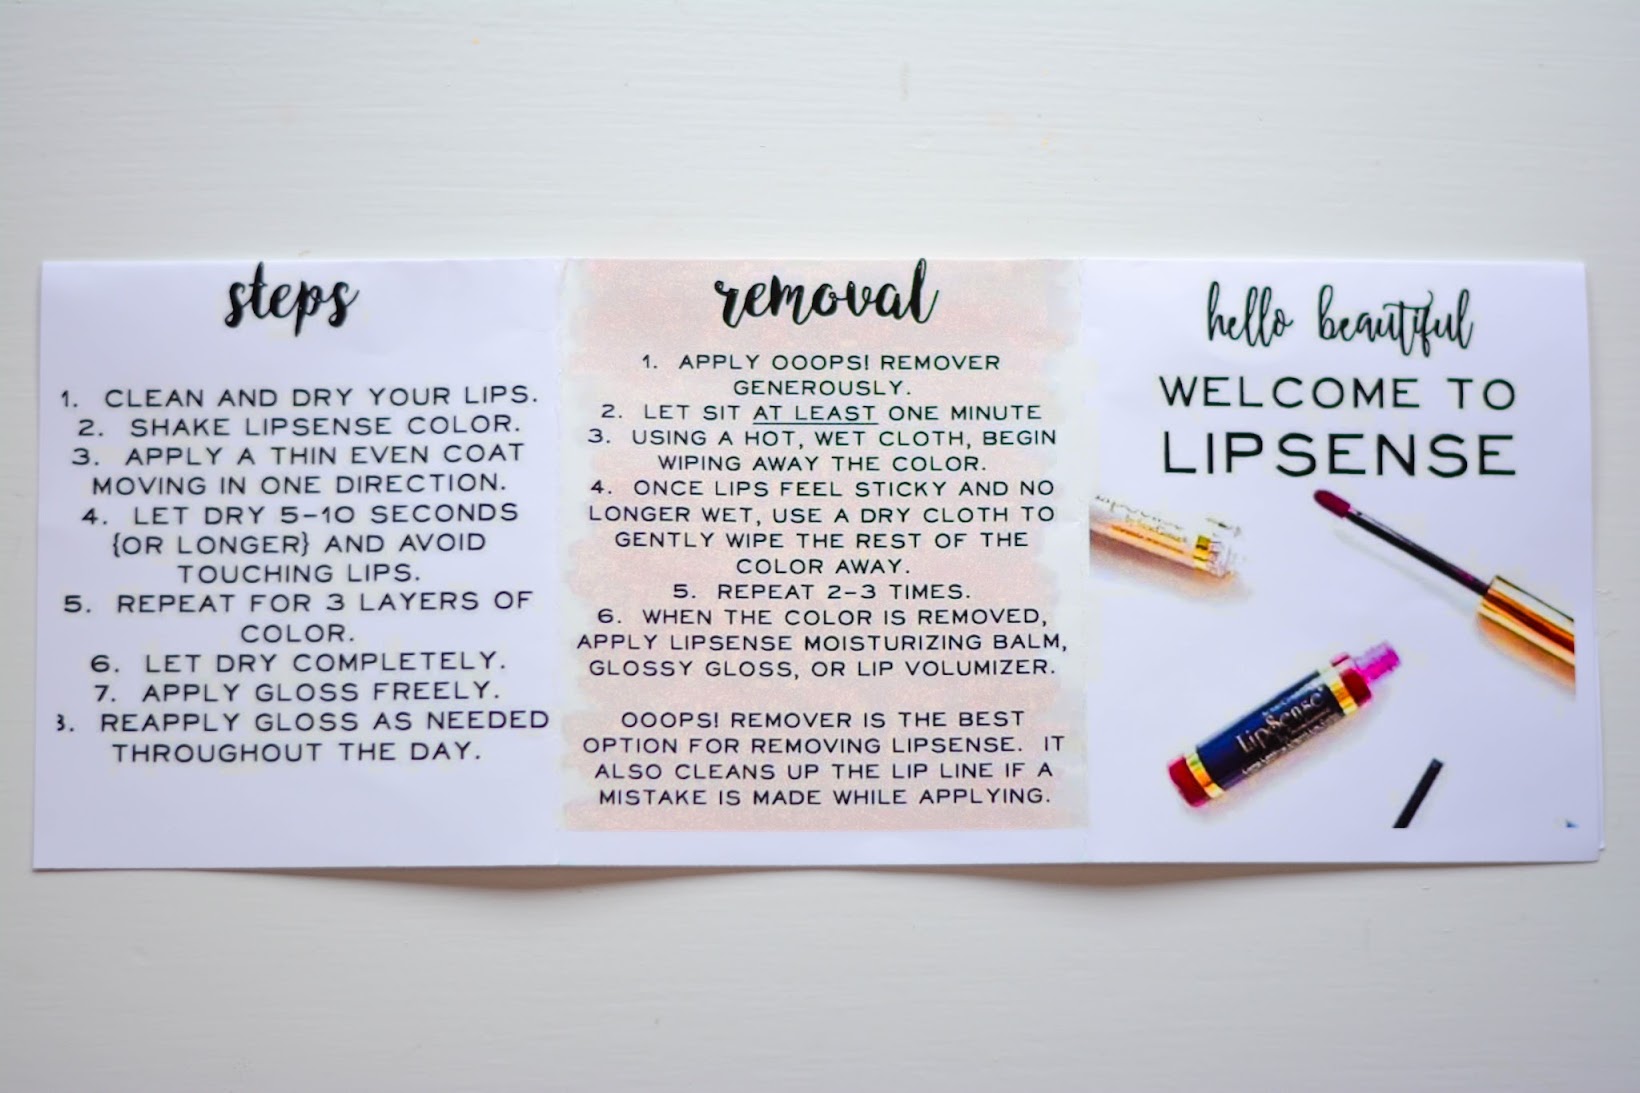 steps
1. CLEAN AND DRY YOUR LIPS.
2. SHAKE LIPSENSE COLOR.
3. APPLY A THIN EVEN COAT
MOVING IN ONE DIRECTION.
4. LET DRY 5-10 SECONDS
{OR LONGER} AND AVOID
TOUCHING LIPS.
5. REPEAT FOR 3 LAYERS OF
COLOR.
6. LET DRY COMPLETELY.
7. APPLY GLOSS FREELY.
8. REAPPLY GLOSS AS NEEDED
THROUGHOUT THE DAY.
removal
1. APPLY OOOPS! REMOVER
GENEROUSLY.
2. LET SIT AT LEAST ONE MINUTE
3. USING A HOT, WET CLOTH, BEGIN
WIPING AWAY THE COLOR.
4. ONCE LIPS FEEL STICKY AND NO
LONGER WET, USE A DRY CLOTH TO
GENTLY WIPE THE REST OF THE
COLOR AWAY.
5. REPEAT 2-3 TIMES.
6. WHEN THE COLOR IS REMOVED,
APPLY LIPSENSE MOISTURIZING BALM,
GLOSSY GLOSS, OR LIP VOLUMIZER.
OOOPS! REMOVER IS THE BEST
OPTION FOR REMOVING LIPSENSE. IT
ALSO CLEANS UP THE LIP LINE IF A
MISTAKE IS MADE WHILE APPLYING.
hello beautiful
WELCOME TO
LIPSENSE
LipSense